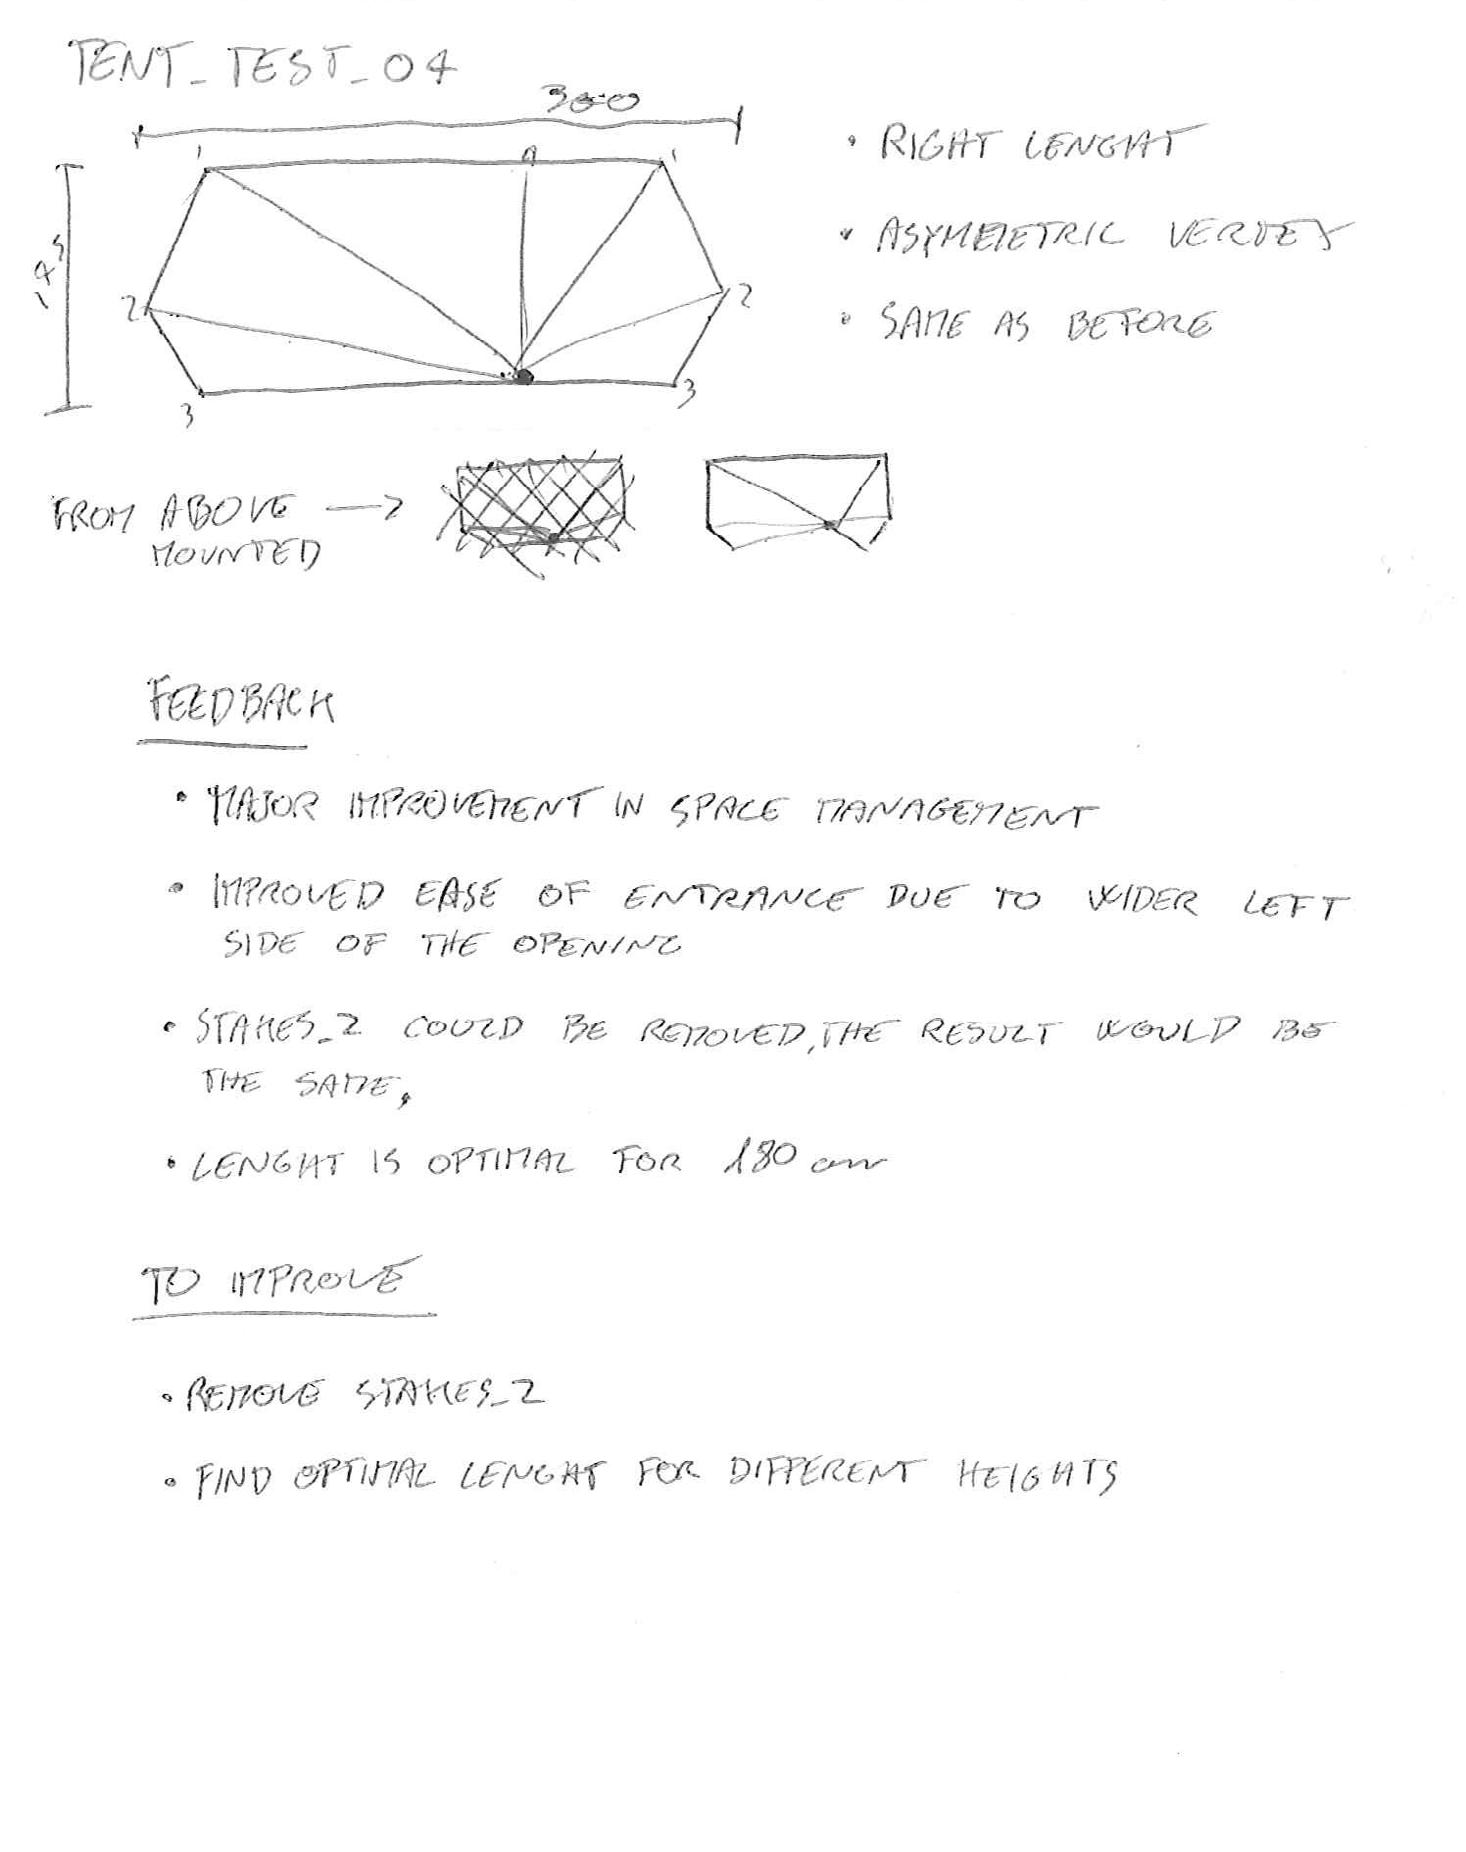 TENT_TEST_04
300
145
1
4
1
2
2
3
3
• RIGHT LENGHT
• ASYMMETRIC VERTEX
• SAME AS BEFORE
FROM ABOVE →
MOUNTED
FEEDBACK
• MAJOR IMPROVEMENT IN SPACE MANAGEMENT
• IMPROVED EASE OF ENTRANCE DUE TO WIDER LEFT
SIDE OF THE OPENING
• STAKES_2 COULD BE REMOVED, THE RESULT WOULD BE
THE SAME.
• LENGHT IS OPTIMAL FOR 180 cm
TO IMPROVE
• REMOVE STAKES_2
• FIND OPTIMAL LENGHT FOR DIFFERENT HEIGHTS